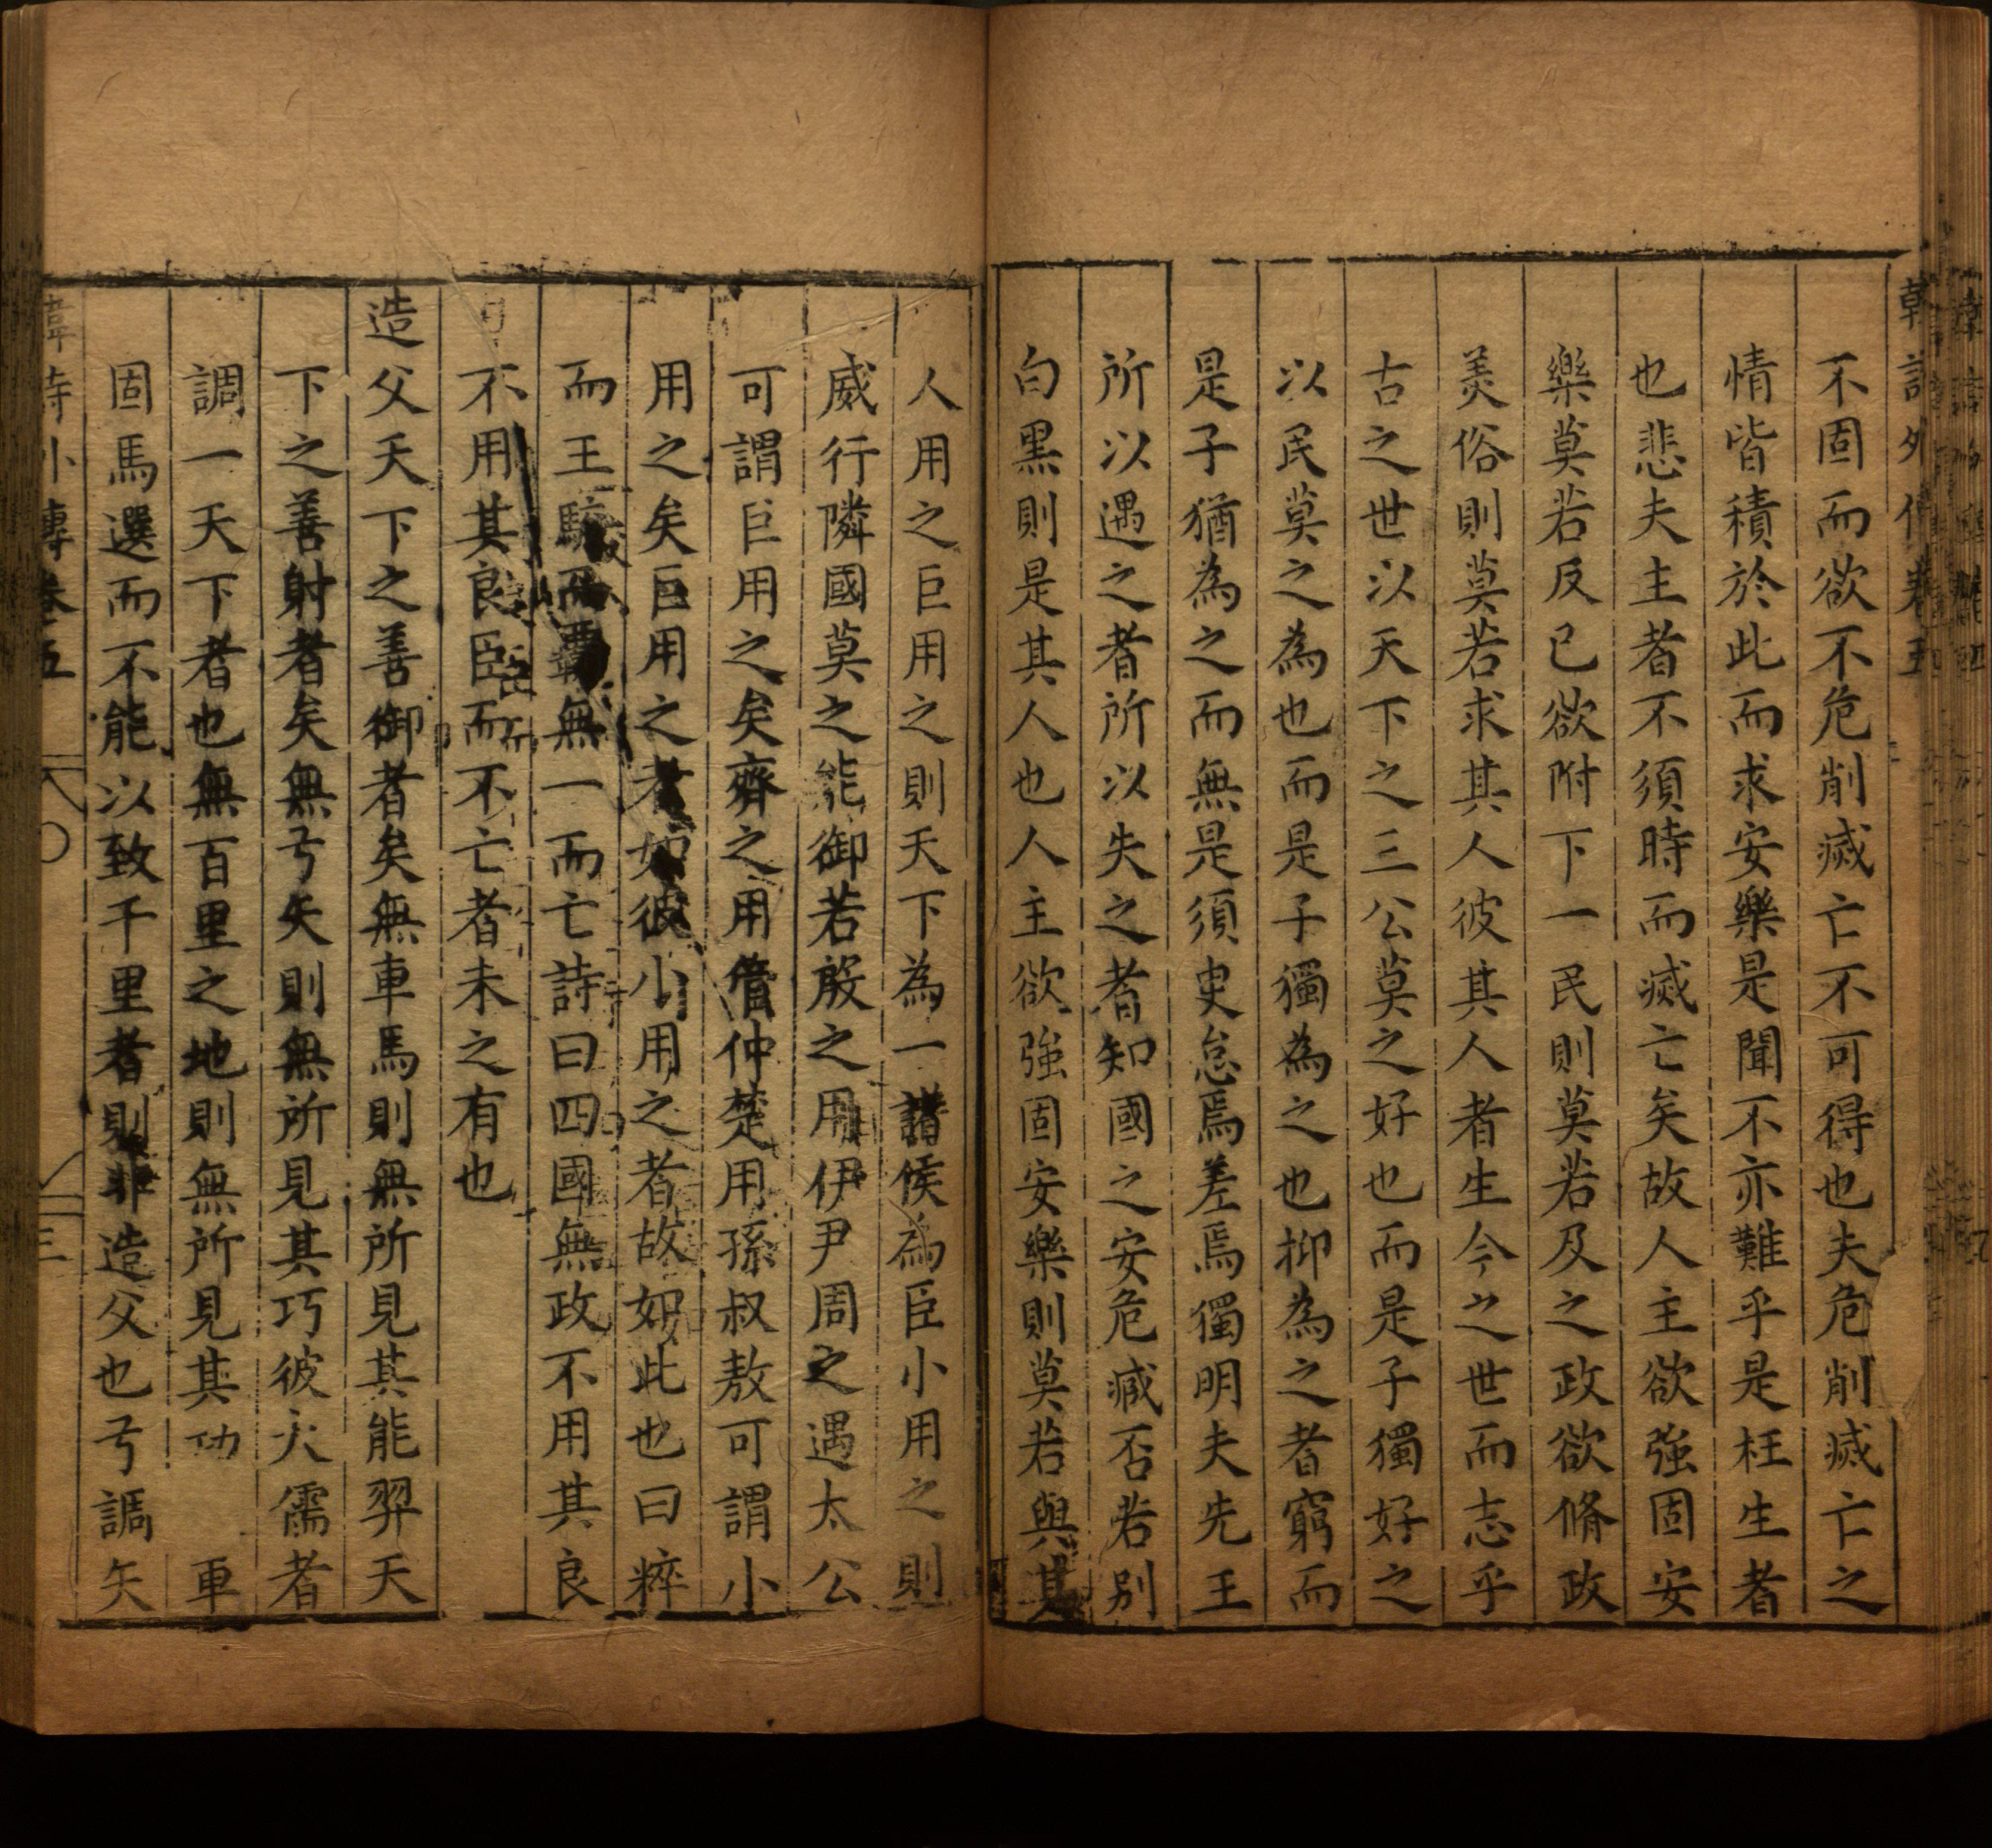 韓詩外傳卷五
不固而欲不危削滅亡不可得也夫危削滅亡之
情皆積於此而求安樂是聞不亦難乎是枉生者
也悲夫主者不須時而滅亡矣故人主欲強固安
樂莫若反已欲附下一民則莫若及之政欲脩政
美俗則莫若求其人彼其人者生今之世而志乎
古之世以天下之三公莫之好也而是子獨好之
以民莫之為也而是子獨為之也抑為之者窮而
是子猶為之而無是須臾怠焉差焉獨明夫先王
所以遇之者所以失之者知國之安危臧否若别
白黑則是其人也人主欲強固安樂則莫若與其
人用之巨用之則天下為一諸侯為臣小用之則
威行隣國莫之能御若殷之用伊尹周之遇太公
可謂巨用之矣齊之用管仲楚用孫叔敖可謂小
用之矣巨用之者如彼小用之者故如此也曰粹
而王駮而霸無一而亡詩曰四國無政不用其良
不用其良臣而不亡者未之有也
造父天下之善御者矣無車馬則無所見其能羿天
下之善射者矣無弓矢則無所見其巧彼大儒者
調一天下者也無百里之地則無所見其功 車
固馬選而不能以致千里者則非造父也弓調矢
詩外傳卷五 三